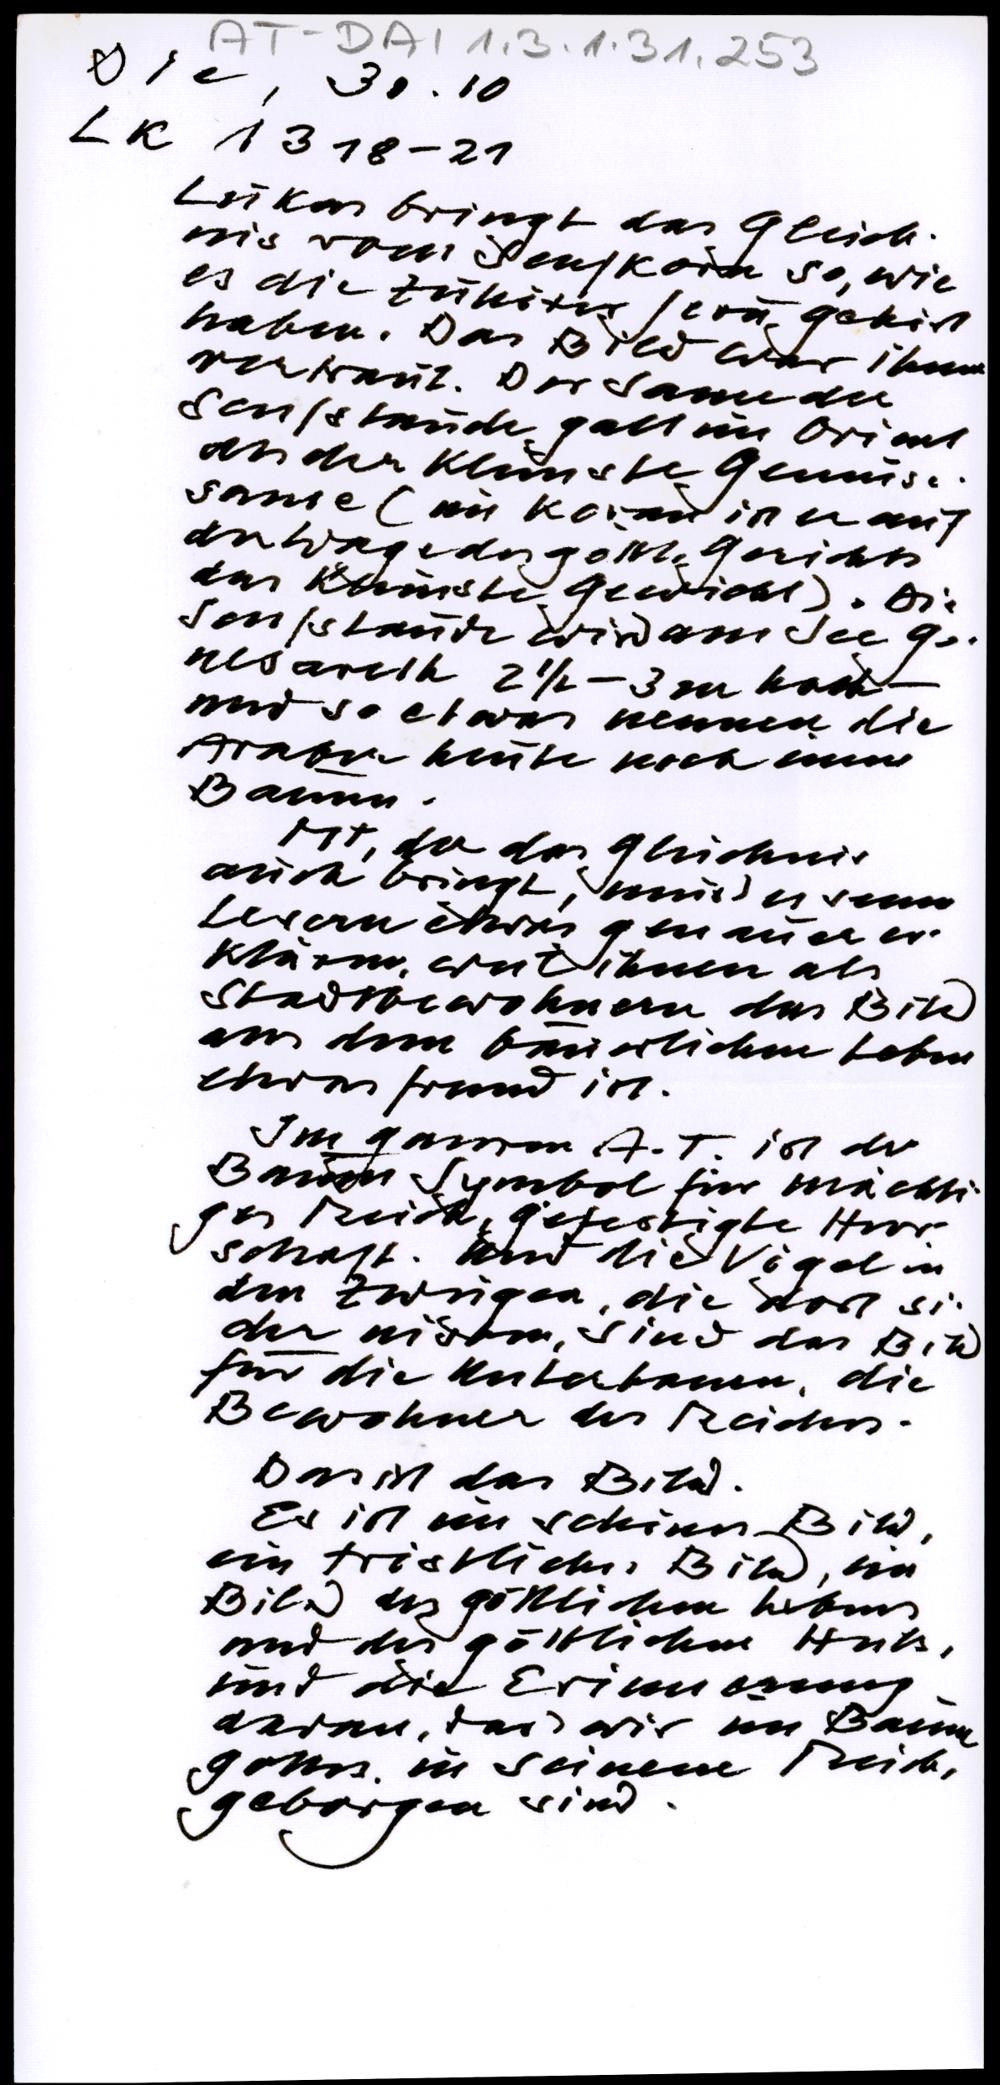 AT-DAI 1.3.1.31.253
Die, 30.10
LK 13 18-21
Lukas bringt das Gleich-
nis vom Senfkorn so, wie
es die Zuhörer Jesu gehört
haben. Das Bild war ihnen
vertraut. Der Same der
Senfstaude galt im Orient
als der kleinste Gemüse-
same (im Koran ist er auf
der Waage des göttl. Gerichts
das kleinste Gewicht). Die
Senfstaude wird am See Ge-
nesareth 2 1/2 - 3 m hoch -
und so etwas nennen die
Araber heute noch immer
Baum.
Mt, der das Gleichnis
auch bringt, muss es seinen
Lesern etwas genauer er-
klären, weil ihnen als
Stadtbewohnern das Bild
aus dem bäuerlichen Leben
etwas fremd ist.
Im ganzen A.T. ist der
Baum Symbol für mächti-
ges Reich, gefestigte Herr-
schaft. Und die Vögel in
den Zweigen, die dort si-
cher nisten, sind das Bild
für die Untertanen, die
Bewohner des Reiches.
Das ist das Bild.
Es ist ein schönes Bild,
ein tröstliches Bild, ein
Bild des göttlichen Lebens
und des göttlichen Heils,
und die Erinnerung
daran, dass wir im Baum
Gottes, in seinem Reich,
geborgen sind.